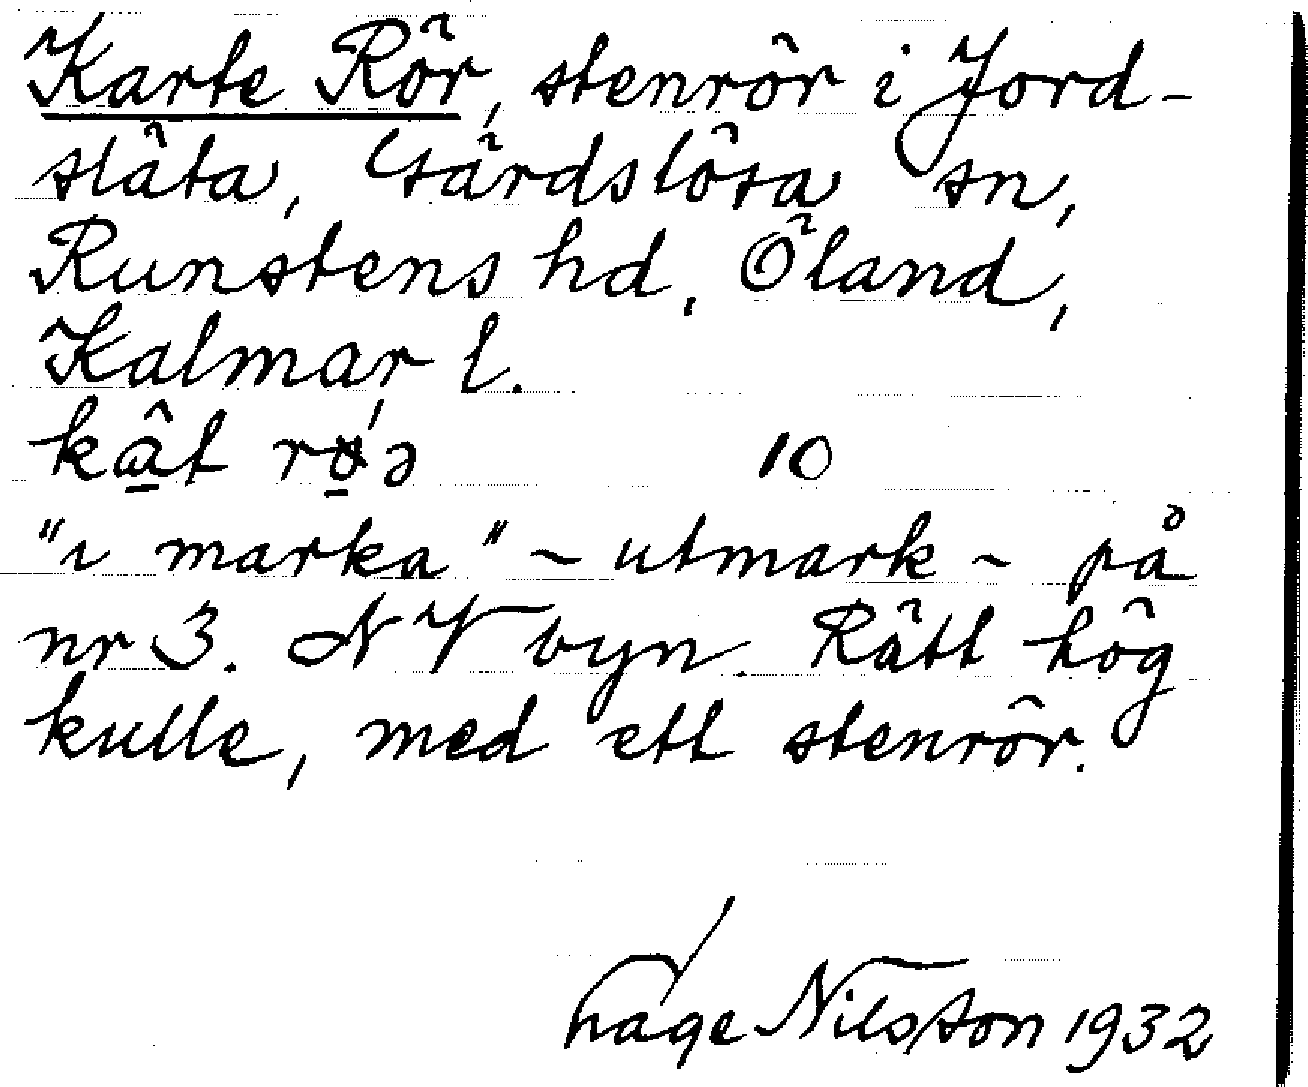 Karte Rör, stenrör i Jord-
släta, Gärdslösa sn,
Runstens hd, Öland,
Kalmar l.
10
"i marka" – utmark – på
nr 3. NV byn. Rätt hög
kulle, med ett stenrör.
Hage Nilsson 1932